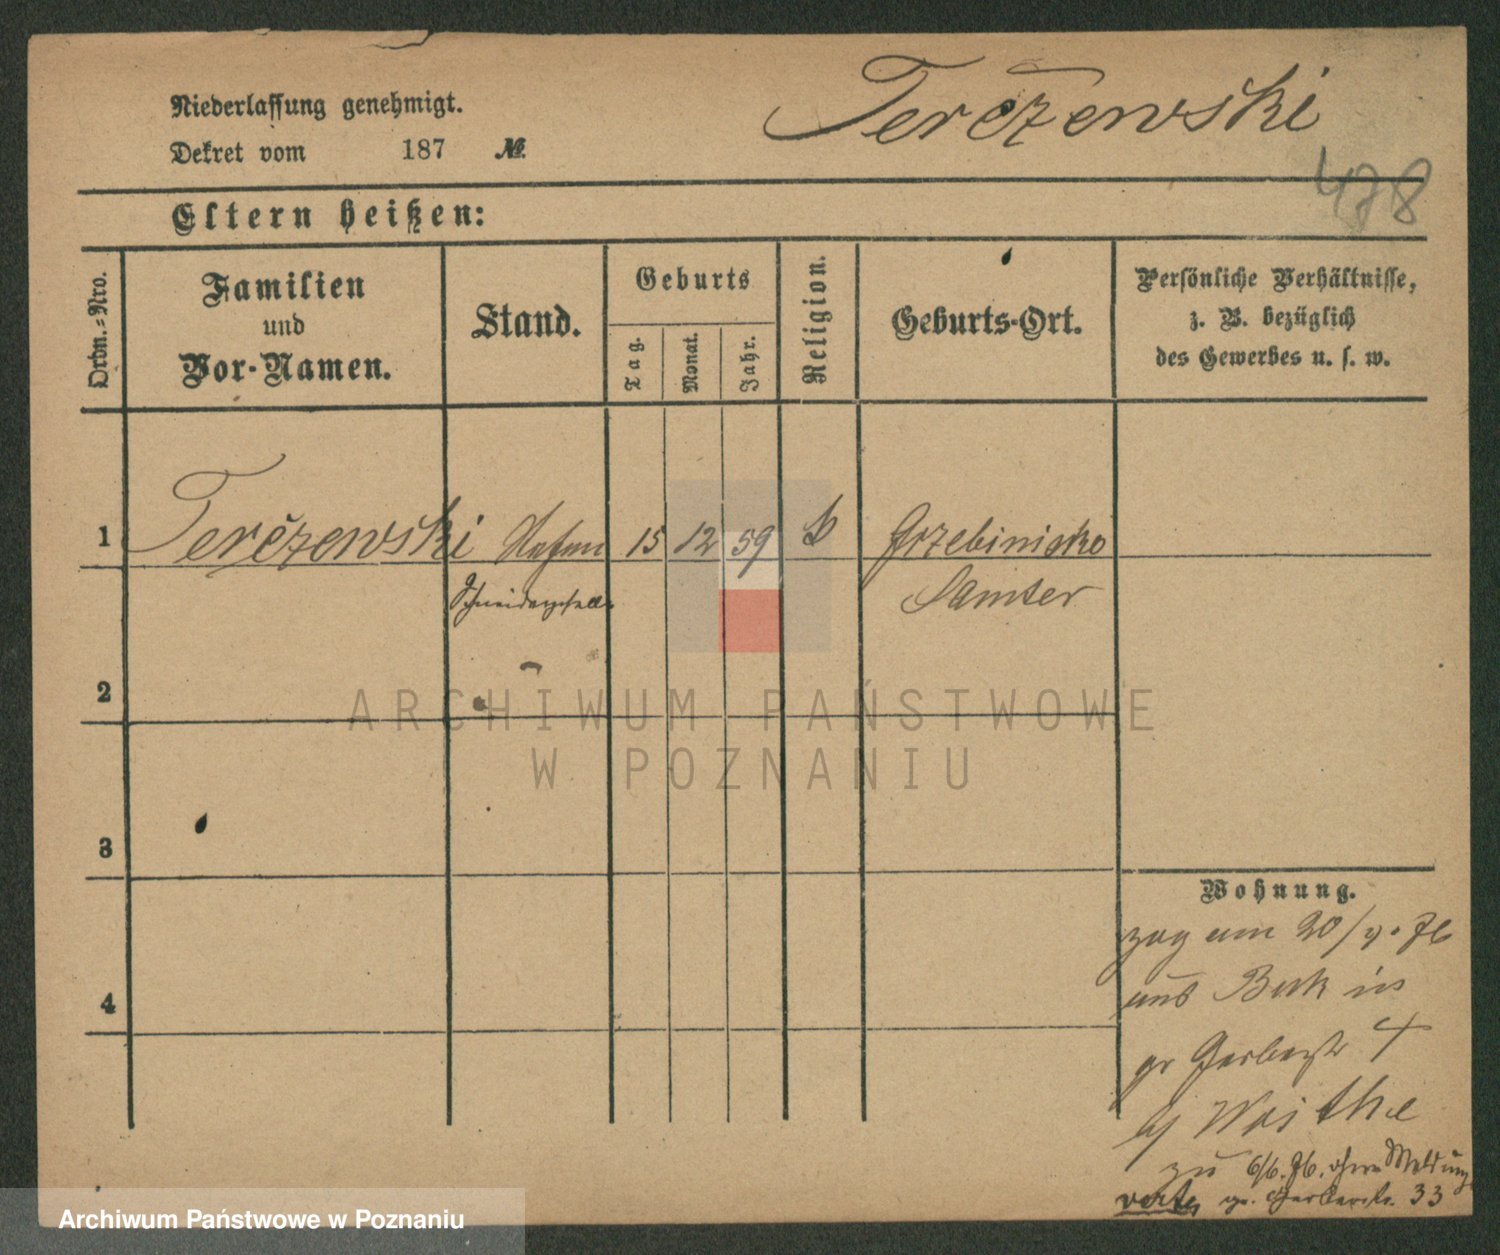 Niederlassung genehmigt.
Dekret vom 187 №.
Terczewski
478
Eltern heißen:
Ordn.=Nro.
Familien
und
Vor-Namen.
Stand.
Geburts
Tag.
Monat.
Jahr.
Religion.
Geburts-Ort.
Persönliche Verhältnisse,
z. B. bezüglich
des Gewerbes u. s. w.
1 Terczewski Stefan 15 12 59 k Grzebinisko
Schneidergesell Samter
2
3
4
Wohnung.
zog am 20/9. 76
aus Buk in
gr Gerberstr 4
bj Woithe
zu 6/6. 76. ohne Meldung
verte, gr. Gerberstr. 33
ARCHIWUM PAŃSTWOWE
W POZNANIU
Archiwum Państwowe w Poznaniu